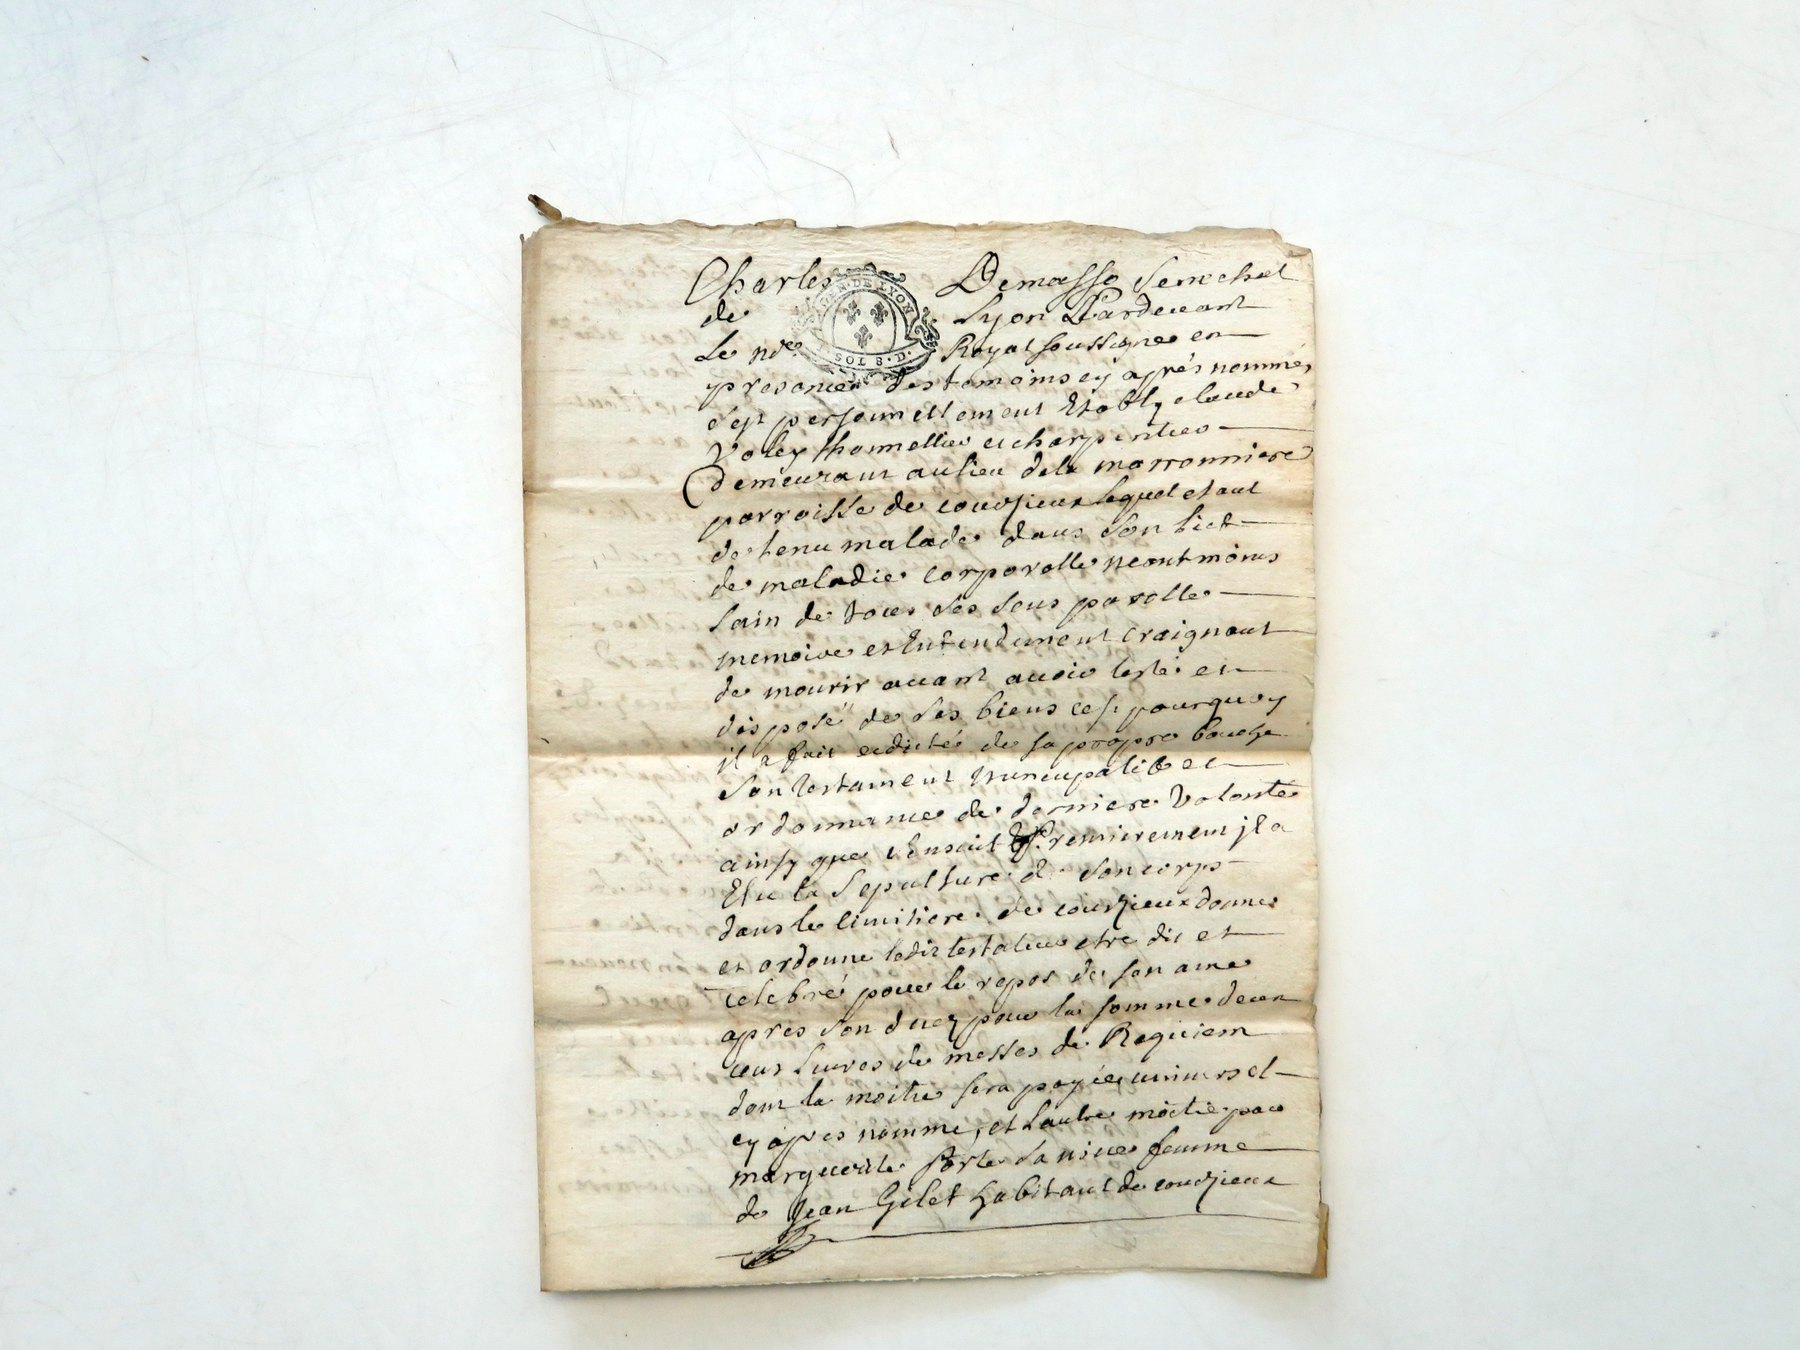 Charles Demasso Senechal
GEN. DE LYON
de Lyon Pardevant
le nre Royal soussigne en
SOL 8. D.
presance des temoins cy après nommés
s'est personnellement Etably claude
Voley thonnellier et charpentier
Demeurant au lieu dela marronniere
parroisse de courzieux lequel etant
detenu malade dans son lict
de maladie corporelle neantmoins
sain de tous ses sens parolle
memoire et Entendement craignant
de mourir avant avoir testé et
disposé de ses biens cest pourquoy
il a fait et dicté de sa propre bouche
son testament nuncupatif et
ordonnance de derniere volonté
ainsy que s'ensuit Premierement jl a
Elu la sepulture de son corps
dans le cimitiere de courzieux donne
et ordonne ledit testateur etre dit et
celebré pour le repos de son ame
apres son decez pour la somme deux
cent livres de messes de Requiem
dont la moitie sera payée universel
cy apres nommé, et l'autre moitie par
marguerite sa niece femme
de Jean Gilet habitant de courzieux